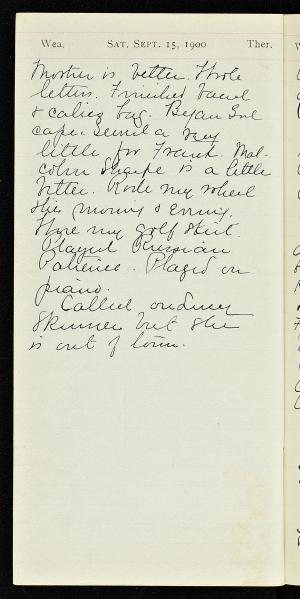 Wea. SAT. SEPT. 15, 1900 Ther.
Mother is better. Wrote
letters. Finished
& calico bag. Began
cape. Sewed a very
little for Frank. Mal-
colm Sharpe is a little
better. Rode my wheel
this morning & evening.
Wore my golf skirt.
Played Russian
Patience. Played on
piano.
Called on
Skinner but she
is out of town.